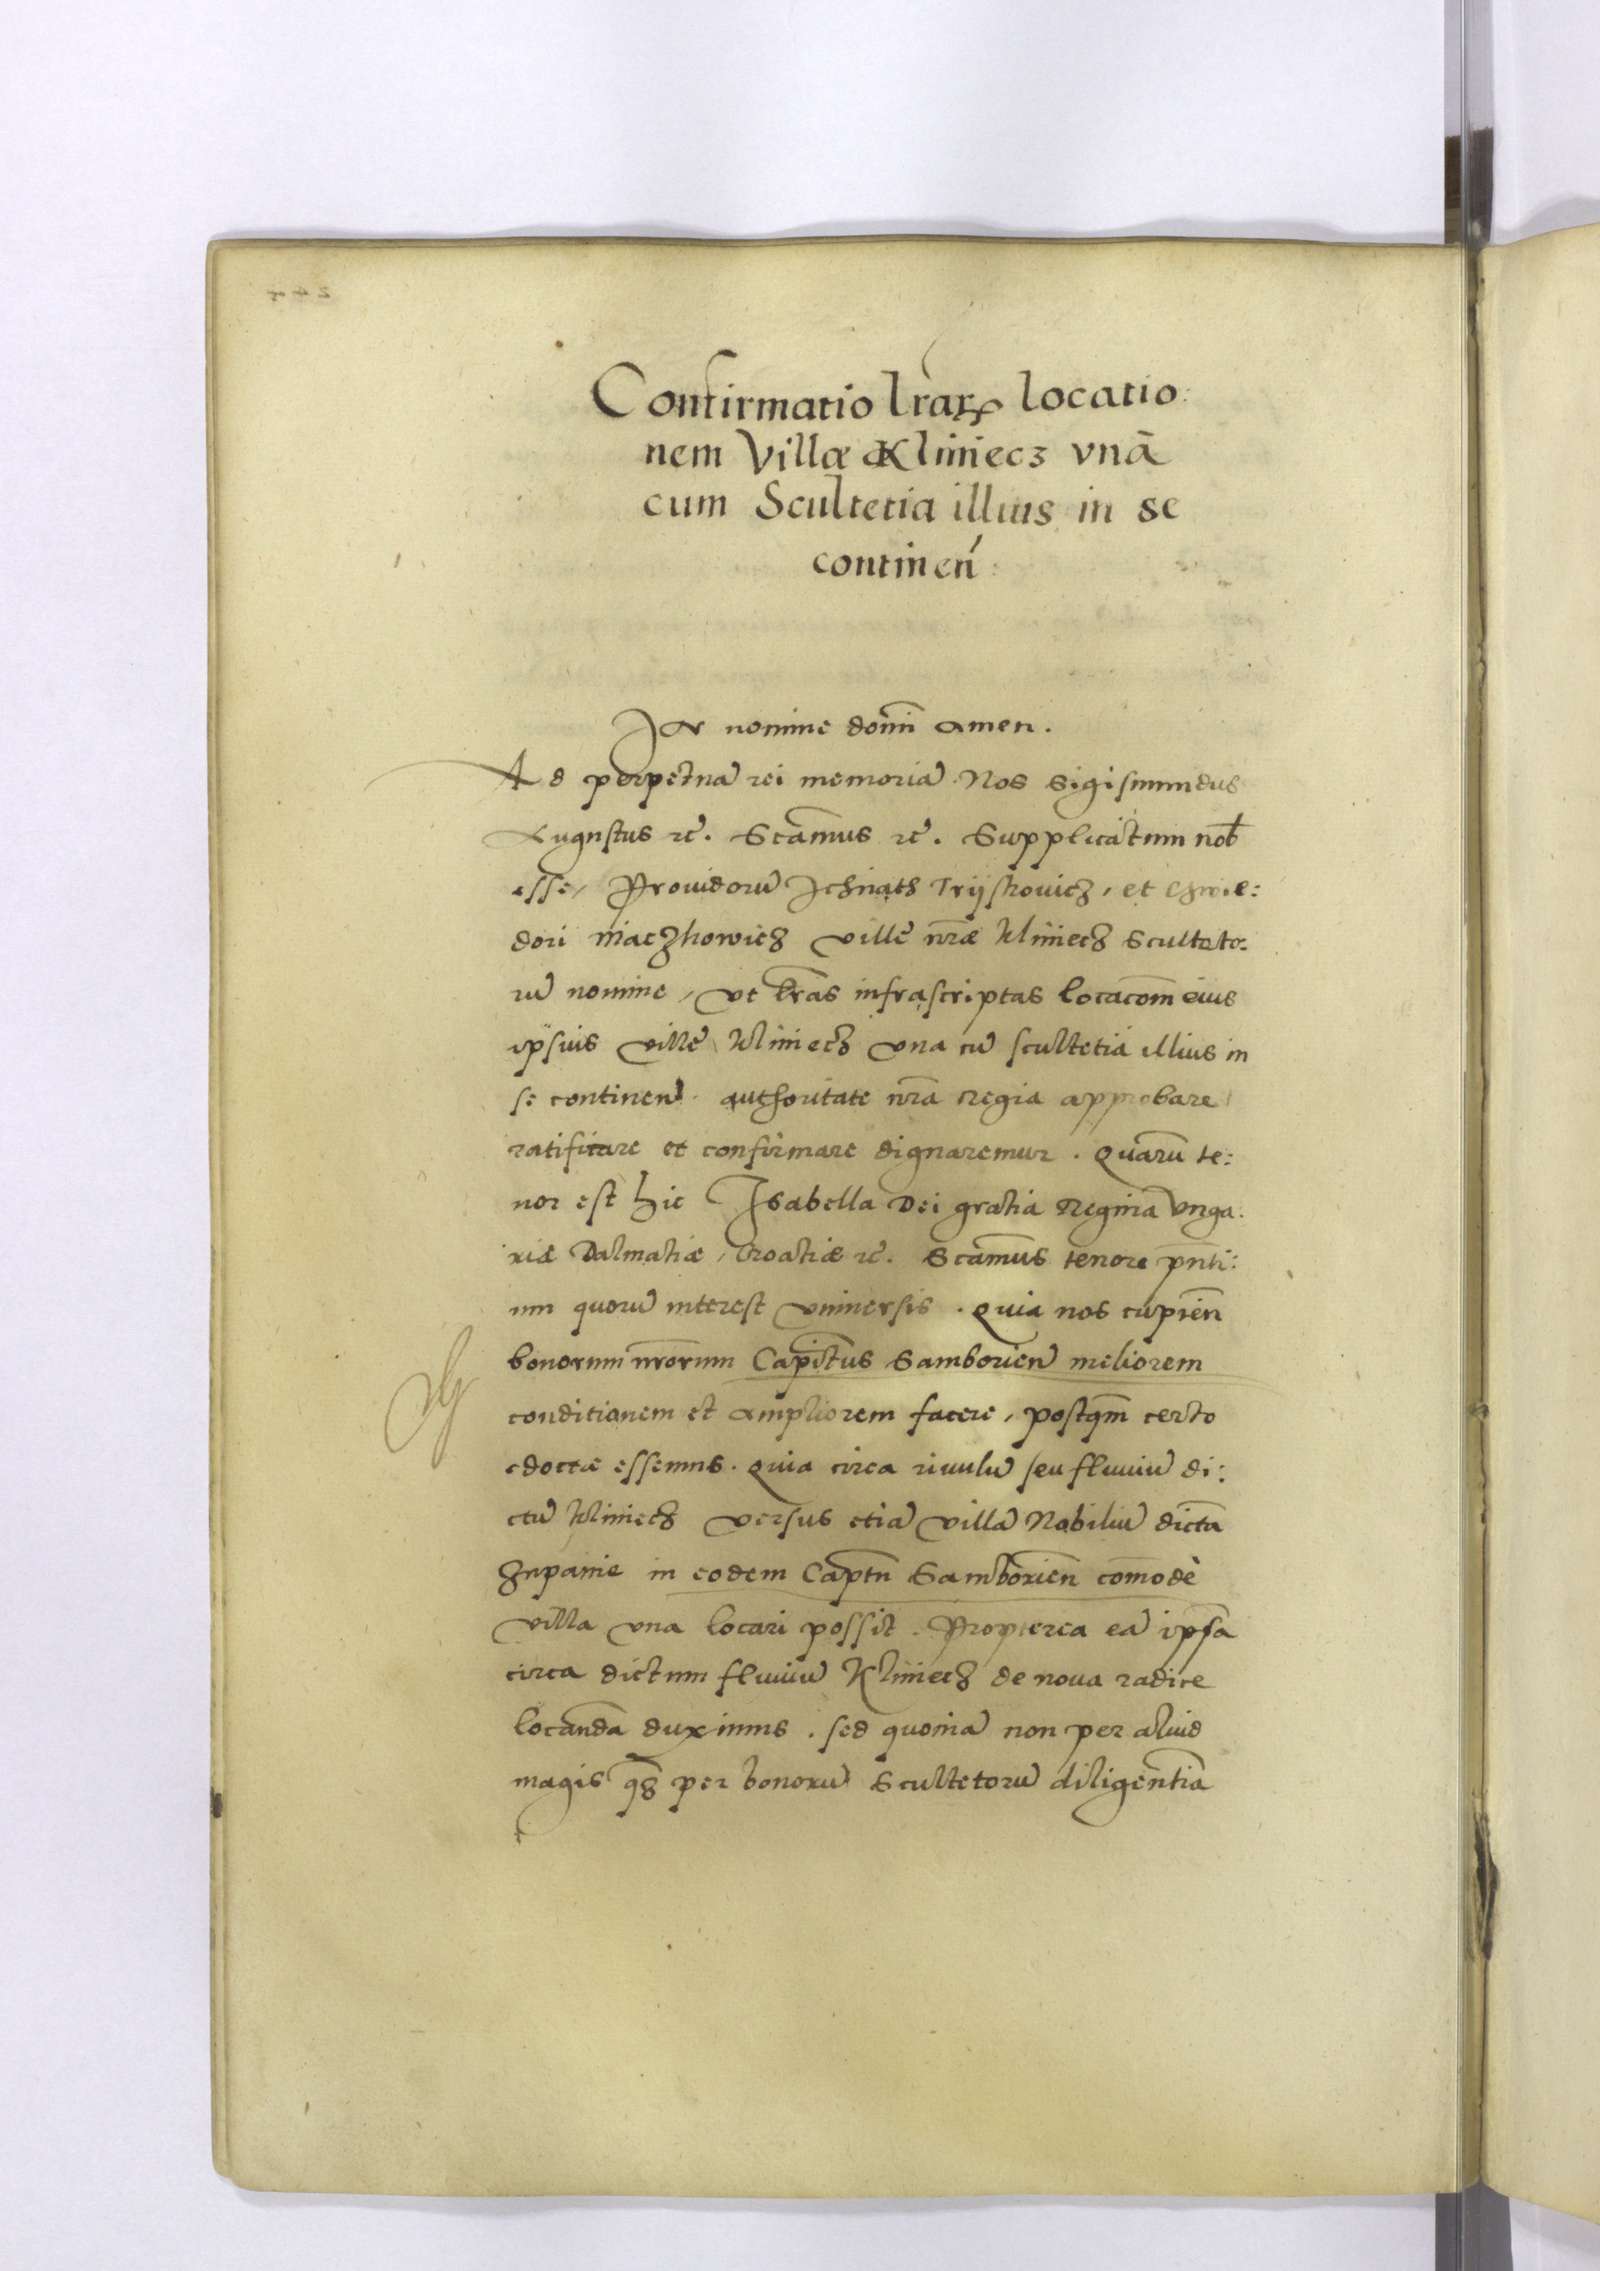 Confirmatio lrarꝝ locatio:
nem Villæ Klimecz vnā
cum Scultetia illius in se
continen̄:
In nomine domī amen.
Ad perpetuā rei memoriā. Nos Sigismundus
Augustus rc̄. Scamus rc̄. Supplicatum nob̄
esse, Prouidorū Ichnath Trijskouicz, et
dori Maczkowicz ville nr̄æ Klimecz Sculteto:
rū nomine, vt lr̄as infrascriptas locacōm eius
ipsius ville Klimecz vna cū scultetia illius in
se continen̄. authoritate nr̄a regia approbare
ratificare et confirmare dignaremur. Quarū te:
nor est hic Isabella Dei gratia Regina Vnga:
riæ Dalmatiæ, Croatiæ rc̄. Scamus tenore pn̄ti:
um quorū interest vniuersis. Quia nos cupien̄
bonorum nr̄orum Capitus Samborien̄ meliorem
conditionem et ampliorem facere, postqm̄ certo
edoctæ essemus. Quia circa riuulū seu fluuiū di:
ctū Klimecz versus etiā villā Nobiliū dictā
Zupanie in eodem Captu Samborien̄ com̄odè
villa vna locari possit. Propterea eā ipsā
circa dictum fluuiū Klimecz de noua radice
locandā duximus. sed quoniā non per aliud
magis qȝ per bonorū Scultetorū diligentiā